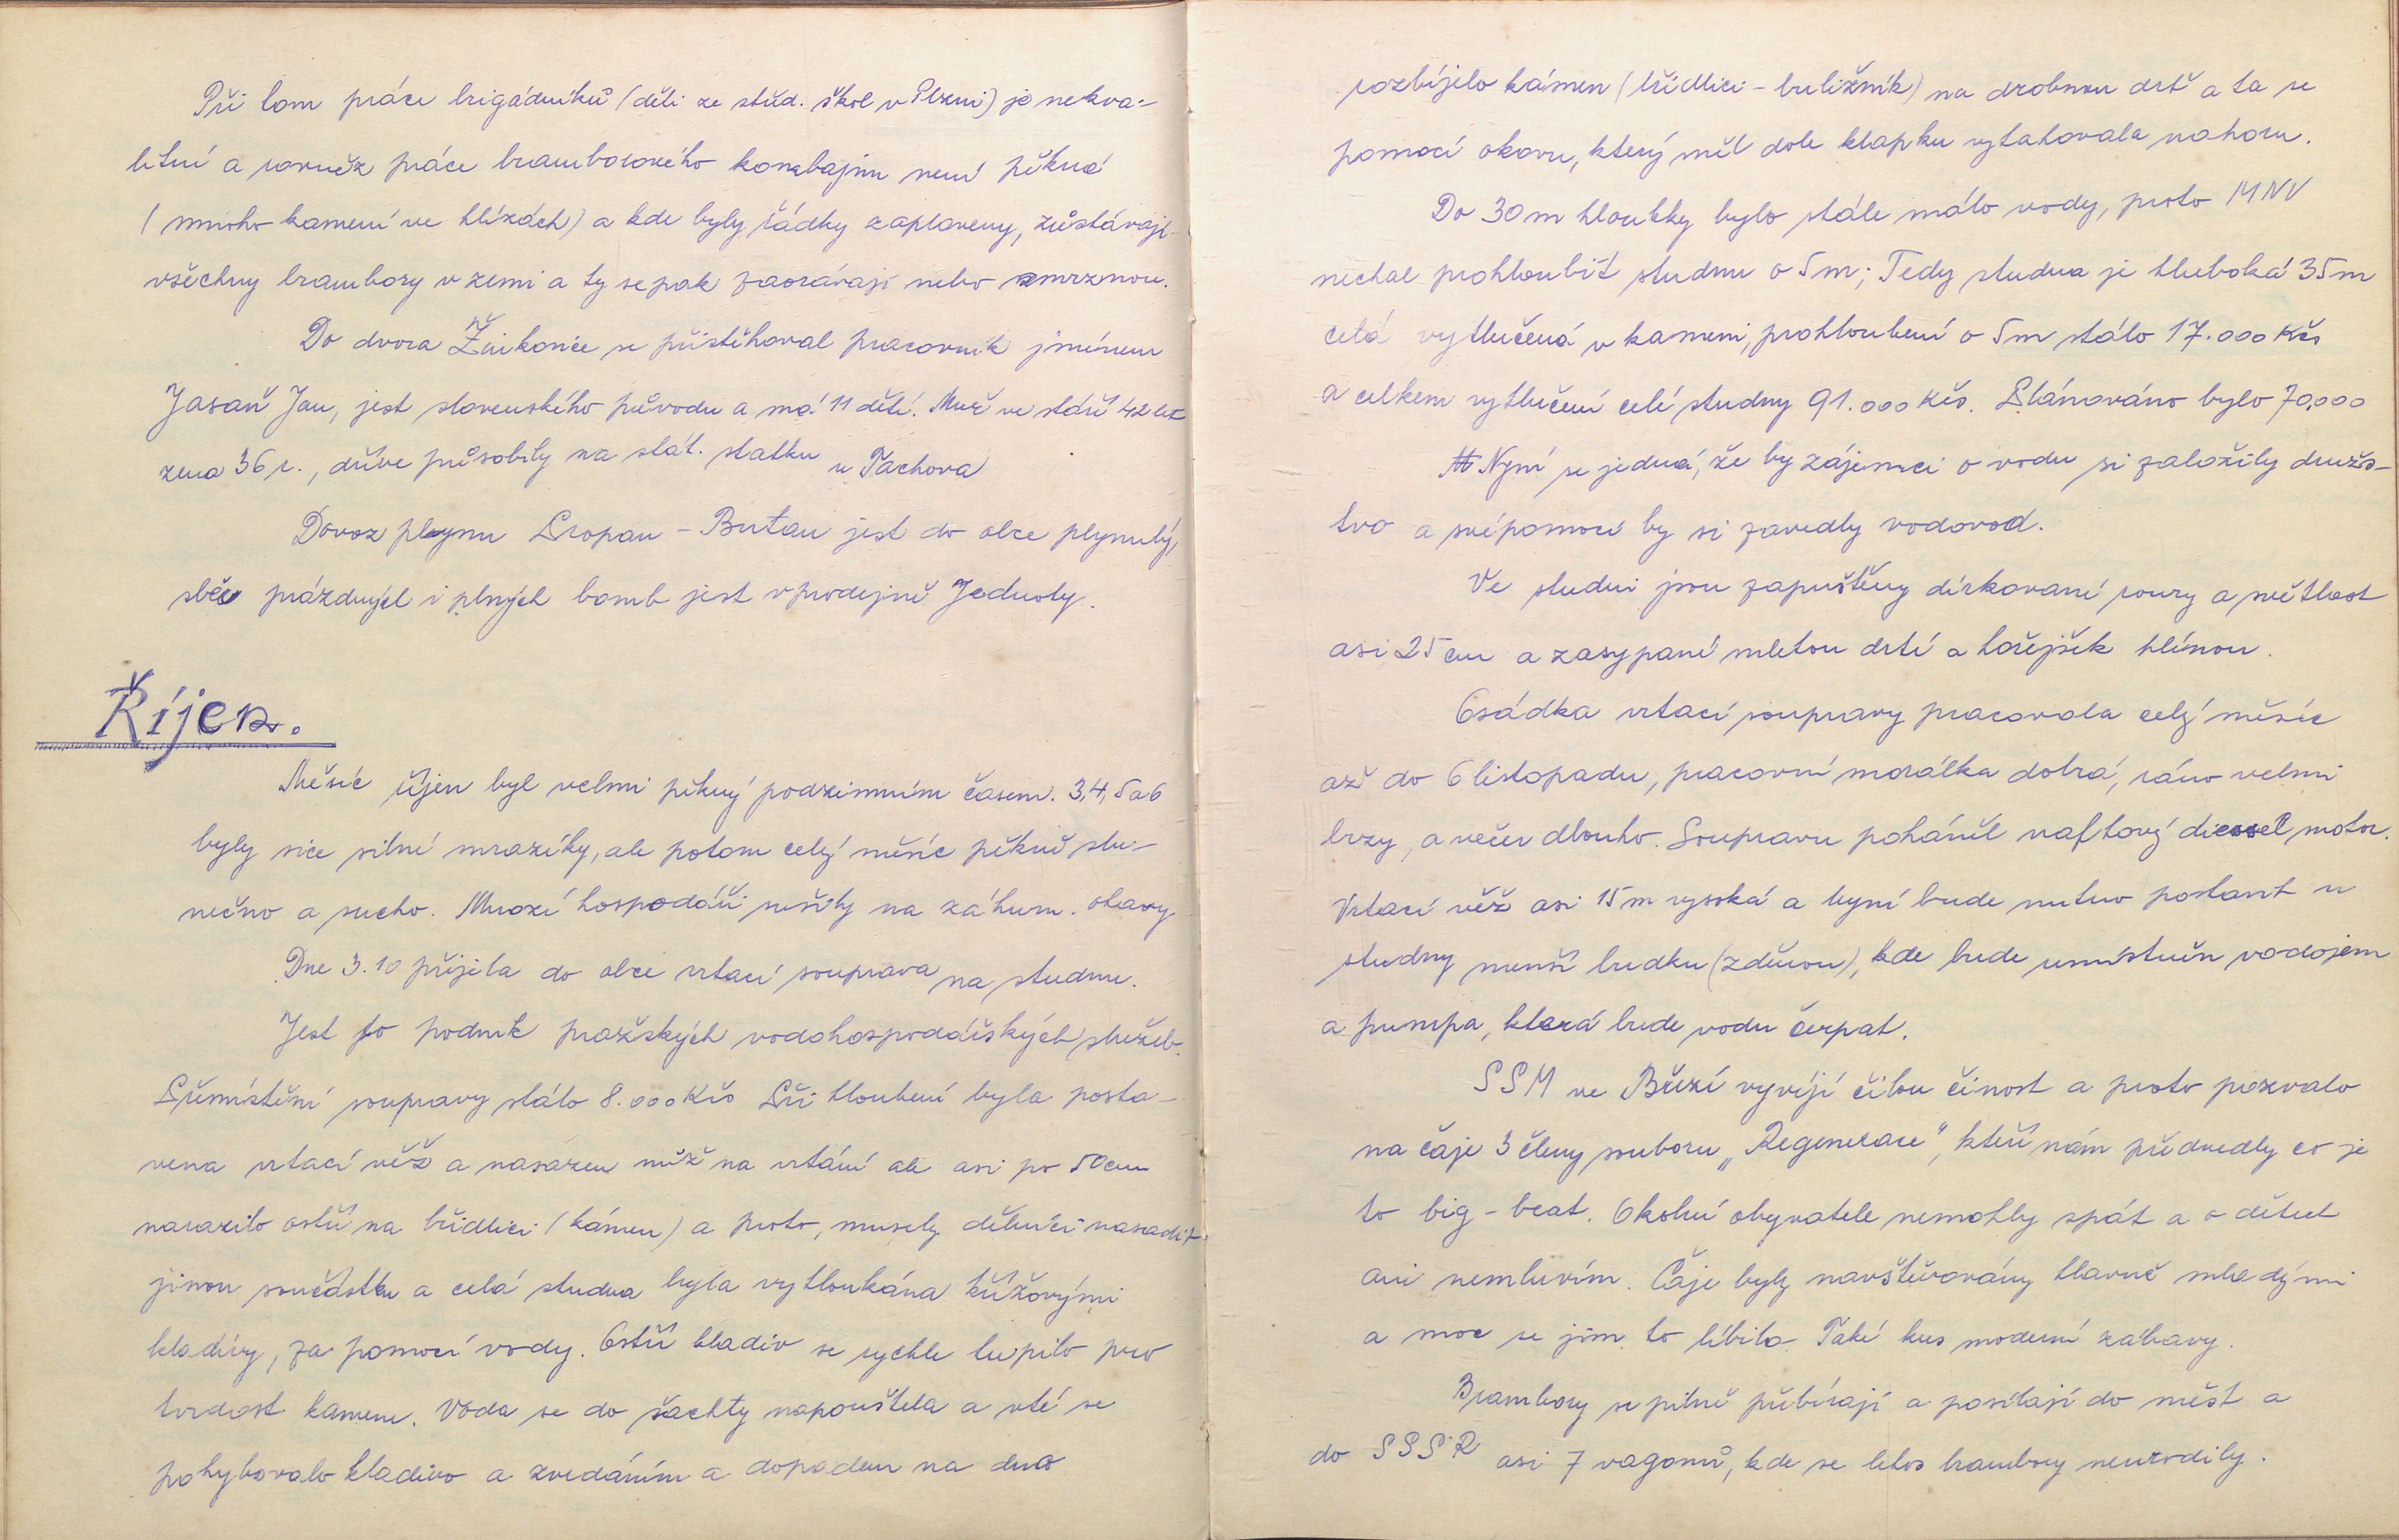 Při tom práce brigádníků (děti ze střed. škol v Plzni) je nekva-
litní a rovněž práce bramborového kombajnu není pěkná
(mnoho kamení ve hlízách) a kde byly řádky zaplaveny, zůstávají
všechny brambory v zemi a ty se pak zaorávají nebo zmrznou.
Do dvora Žinkovice se přistěhoval pracovník jménem
Jasaň Jan, jest slovenského původu a má 11 dětí. Muž ve stáří 42 let
žena 36 r., dříve působily na stát. statku u Tachova
Dovoz plynu Propan - Butan jest do obce plynulý,
sběr prázdných i plných bomb jest v prodejně Jednoty.
Říjen.
Měsíc říjen byl velmi pěkný podzimním časem. 3,4,5 a 6
byly sice silné mrazíky, ale potom celý měsíc pěkně slu-
nečno a sucho. Mnozí hospodáři sušily na záhum. otavy.
Dne 3.10 přijela do obce vrtací souprava na studnu.
Jest to podnik pražských vodohospodářských služeb.
Přemístění soupravy stálo 8.000 Kčs Při hloubení byla posta-
vena vrtací věž a nasazen nůž na vrtání ale asi po 50 cm
narazilo ostří na břidlici (kámen) a proto, musely dělníci nasadit
jinou součástku a celá studna byla vytloukána křížovými
kladivy, za pomocí vody. Ostří kladiv se rychle tupilo pro
tvrdost kamene. Voda se do šachty napouštěla a v té se
pohybovalo kladivo a zvedáním a dopadem na dno
rozbíjelo kámen (břidlici - buližník) na drobnou drť a ta se
pomocí okovu, který měl dole klapku vytahovala nahoru.
Do 30 m hloubky bylo stále málo vody, proto MNV
nechal prohloubit studnu o 5 m; Tedy studna je hluboká 35 m
celá vytlučená v kameni, prohloubení o 5 m stálo 17.000 Kčs
a celkem vytlučení celé studny 91.000 Kčs. Plánováno bylo 70.000
Nyní se jedná, že by zájemci o vodu si založily družs-
tvo a svépomocí by si zavedly vodovod.
Ve studni jsou zapuštěny dírkované roury a světlost
asi 25 cm a zasypané mletou drtí a hořejšek hlínou.
Osádka vrtací soupravy pracovala celý měsíc
až do 6 listopadu, pracovní morálka dobrá, ráno velmi
brzy, a večer dlouho. Soupravu poháněl naftový diessel motor.
Vrtací věž asi 15 m vysoká a nyní bude nutno postavit u
studny menší budku (zděnou), kde bude umístněn vodojem
a pumpa, která bude vodu čerpat.
SSM ve Březí vyvíjí čilou činost a proto pozvalo
na čaje 3 členy souboru „Regenerace", kteří nám předvedly co je
to big - beat. Okolní obyvatele nemohly spát a o dětech
ani nemluvím. Čaje byly navštěvovány hlavně mladými
a moc se jim to líbilo. Také kus moderní zábavy.
Brambory se pilně přebírají a posílají do měst a
do SSSR asi 7 vagonů, kde se letos brambory neurodily.